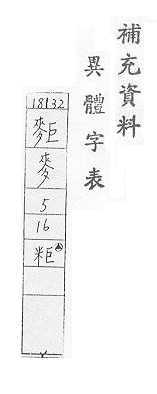 補充資料
異體字表
18132
麮
麥
5
16
粔